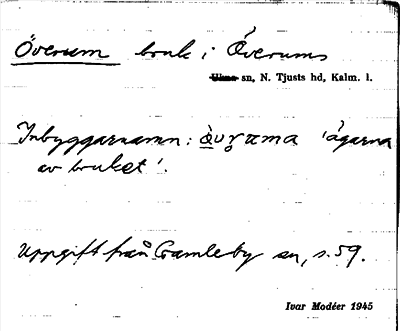 Överum bruk i Överums
Ukna sn, N. Tjusts hd, Kalm. l.
Inbyggarnamn: 'ägarna
av bruket'.
Uppgift från Gamleby sn, s. 59.
Ivar Modéer 1945